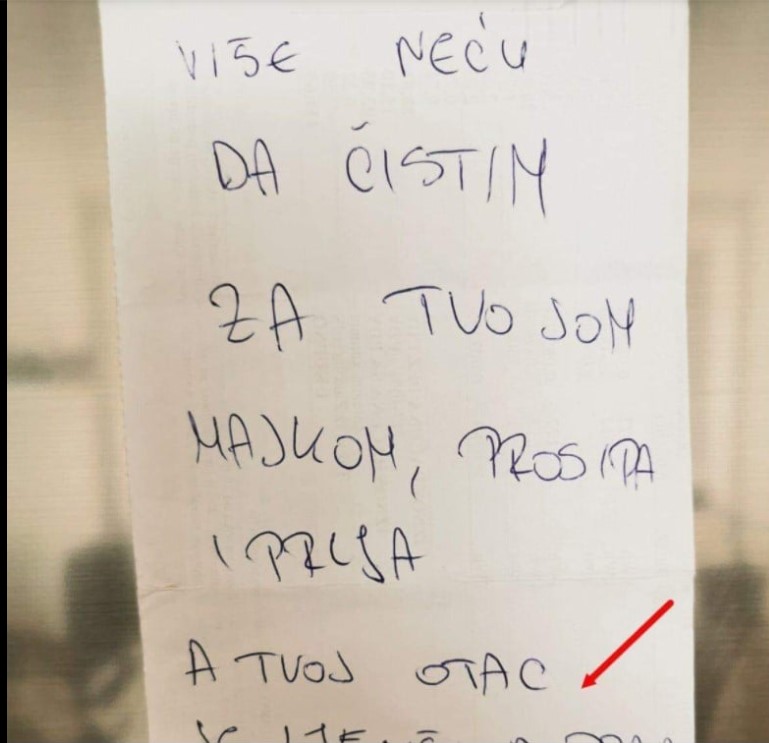 VIŠE NEĆU
DA ČISTIM
ZA TVOJOM
MAJKOM, PROSIPA
I PRLJA
A TVOJ OTAC